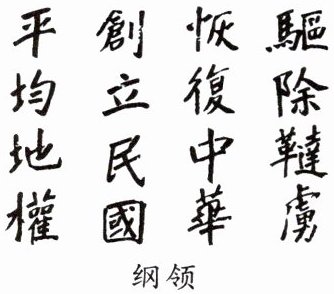 驅除韃虜
恢復中華
創立民國
平均地權
纲领